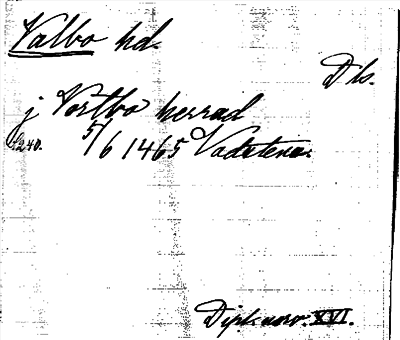 Valbo hd.
Dls.
j Vostbo herrad
s. 240. 5/6 1465 Vadstena.
Dipl. norv. XVI.